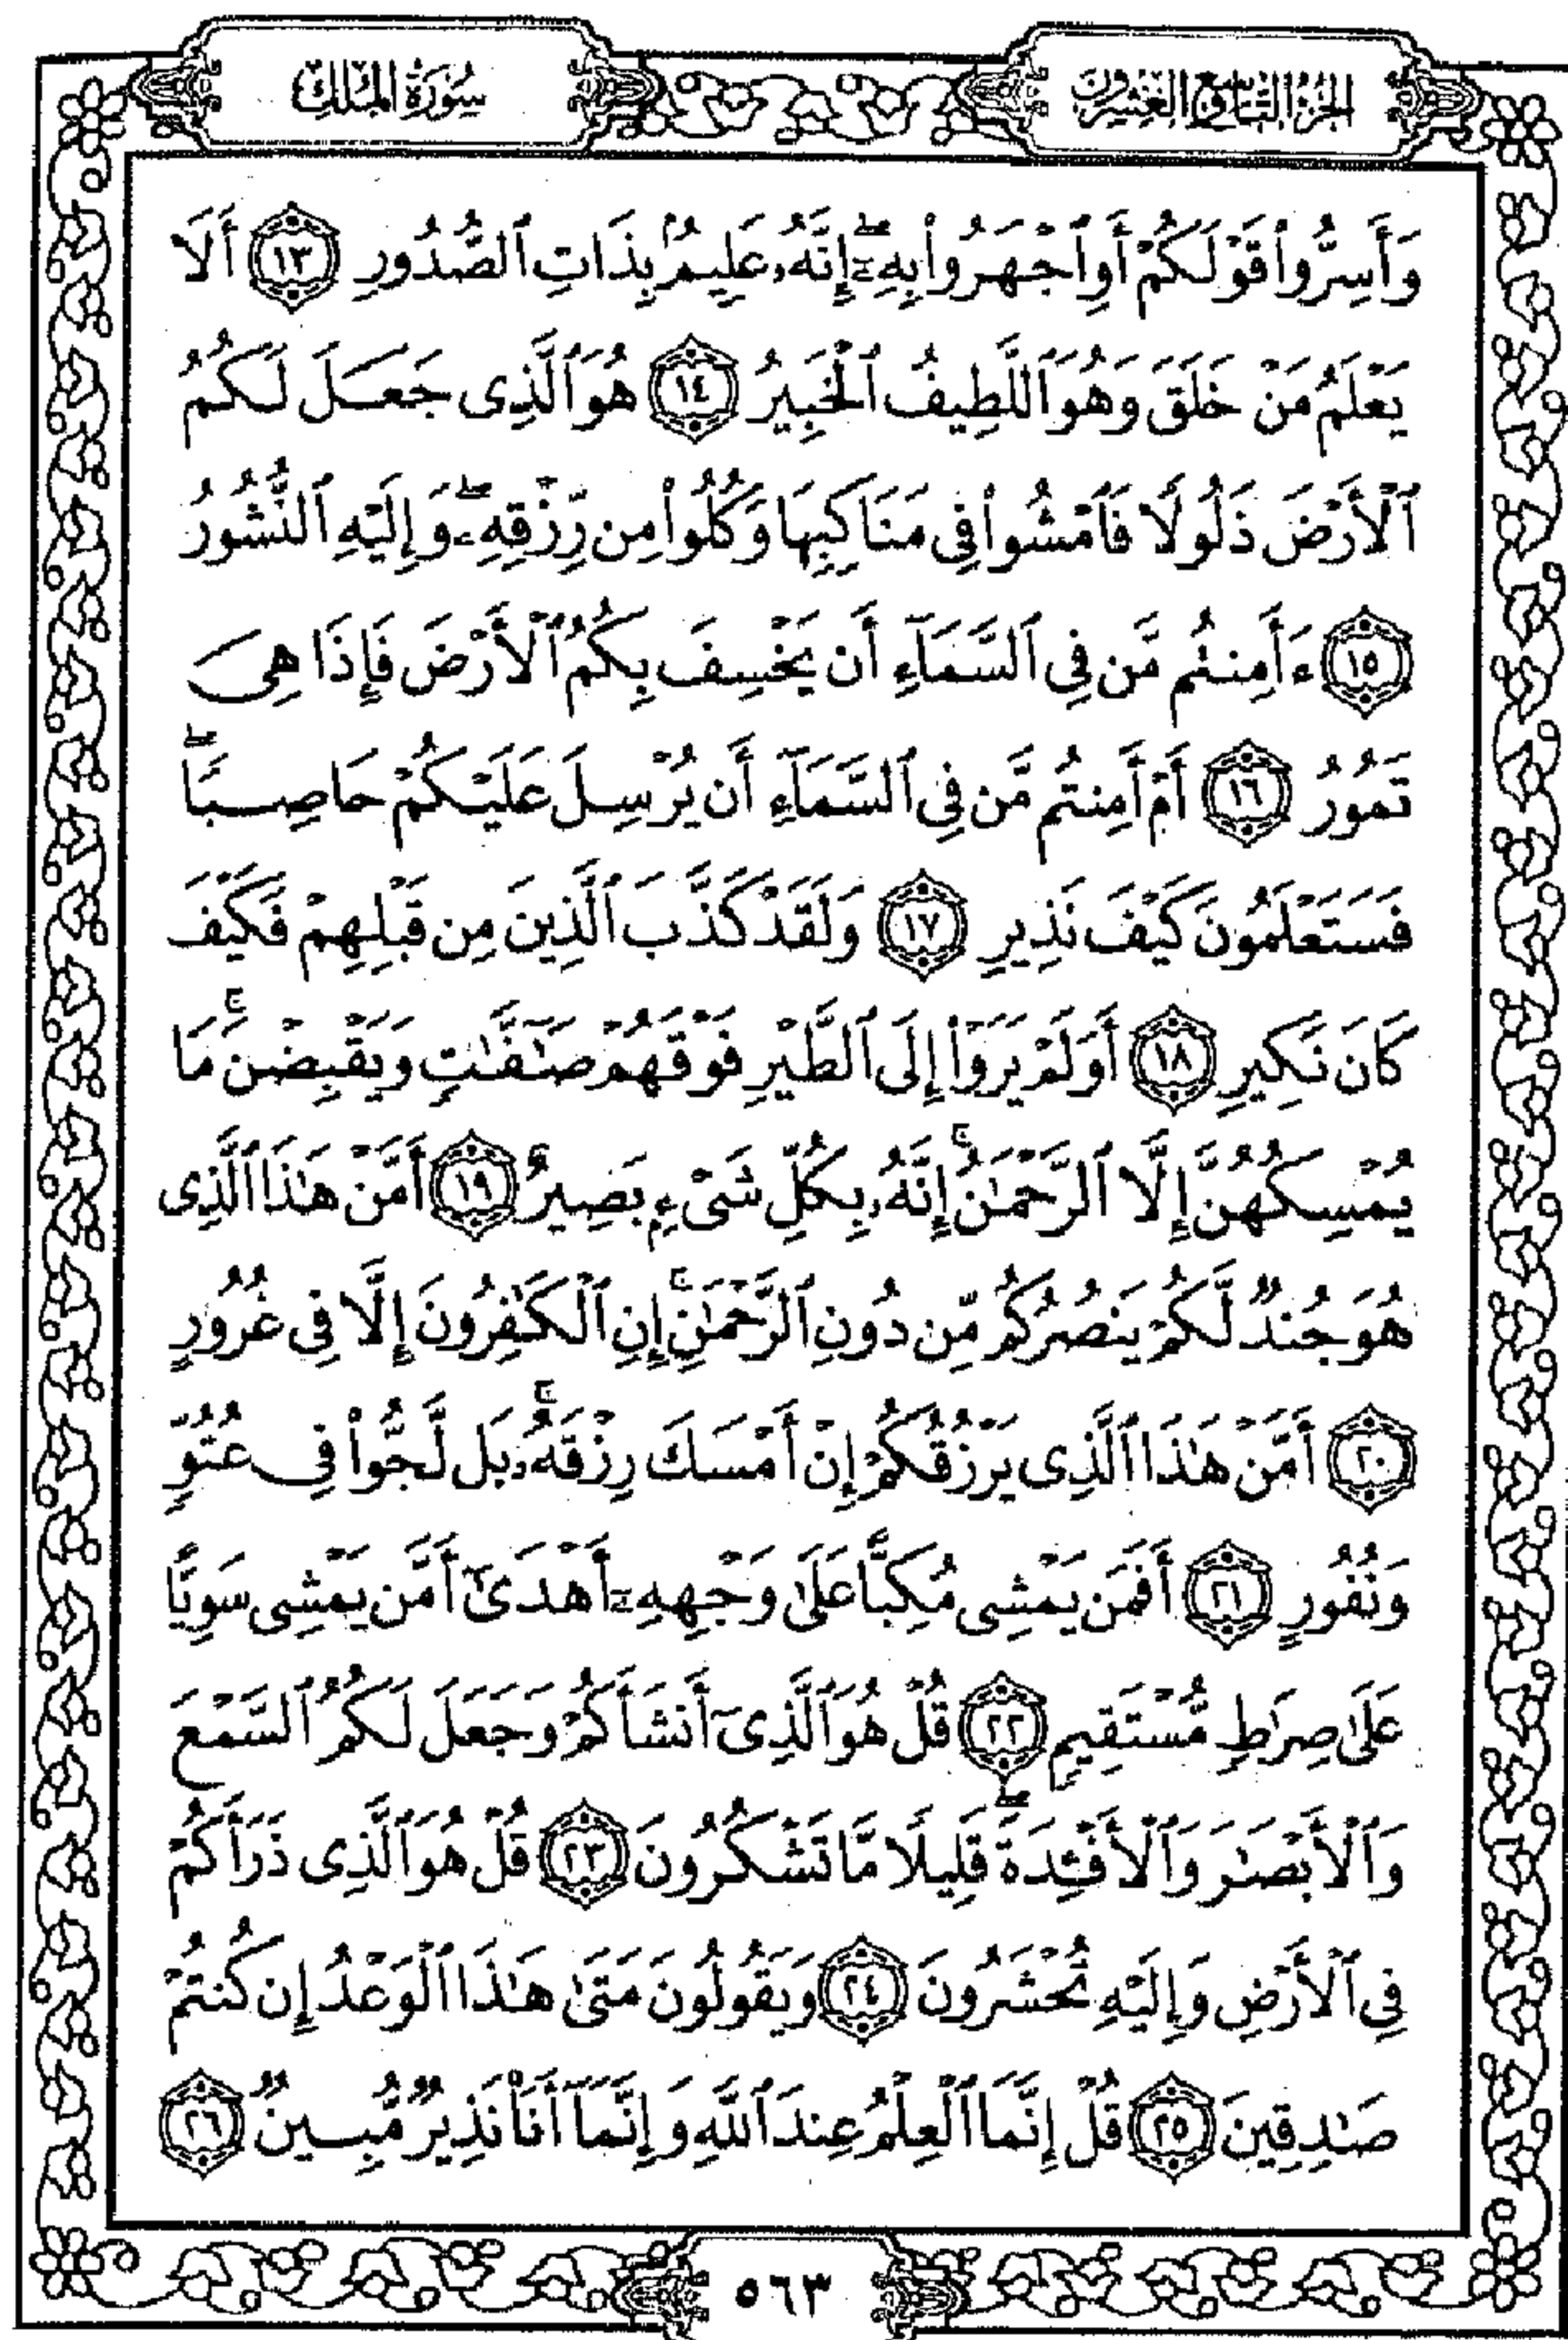 الجزء التاسع والعشرون
سُورَةُ المُلْكِ
وَأَسِرُّوا۟ قَوْلَكُمْ أَوِ ٱجْهَرُوا۟ بِهِۦٓ ۖ إِنَّهُۥ عَلِيمٌۢ بِذَاتِ ٱلصُّدُورِ ١٣ أَلَا
يَعْلَمُ مَنْ خَلَقَ وَهُوَ ٱللَّطِيفُ ٱلْخَبِيرُ ١٤ هُوَ ٱلَّذِى جَعَلَ لَكُمُ
ٱلْأَرْضَ ذَلُولًا فَٱمْشُوا۟ فِى مَنَاكِبِهَا وَكُلُوا۟ مِن رِّزْقِهِۦ ۖ وَإِلَيْهِ ٱلنُّشُورُ
١٥ ءَأَمِنتُم مَّن فِى ٱلسَّمَآءِ أَن يَخْسِفَ بِكُمُ ٱلْأَرْضَ فَإِذَا هِىَ
تَمُورُ ١٦ أَمْ أَمِنتُم مَّن فِى ٱلسَّمَآءِ أَن يُرْسِلَ عَلَيْكُمْ حَاصِبًا ۖ
فَسَتَعْلَمُونَ كَيْفَ نَذِيرِ ١٧ وَلَقَدْ كَذَّبَ ٱلَّذِينَ مِن قَبْلِهِمْ فَكَيْفَ
كَانَ نَكِيرِ ١٨ أَوَلَمْ يَرَوْا۟ إِلَى ٱلطَّيْرِ فَوْقَهُمْ صَٰٓفَّٰتٍ وَيَقْبِضْنَ ۚ مَا
يُمْسِكُهُنَّ إِلَّا ٱلرَّحْمَٰنُ ۚ إِنَّهُۥ بِكُلِّ شَىْءٍۭ بَصِيرٌ ١٩ أَمَّنْ هَٰذَا ٱلَّذِى
هُوَ جُندٌ لَّكُمْ يَنصُرُكُم مِّن دُونِ ٱلرَّحْمَٰنِ ۚ إِنِ ٱلْكَٰفِرُونَ إِلَّا فِى غُرُورٍ
٢٠ أَمَّنْ هَٰذَا ٱلَّذِى يَرْزُقُكُمْ إِنْ أَمْسَكَ رِزْقَهُۥ ۚ بَل لَّجُّوا۟ فِى عُتُوٍّ
وَنُفُورٍ ٢١ أَفَمَن يَمْشِى مُكِبًّا عَلَىٰ وَجْهِهِۦٓ أَهْدَىٰٓ أَمَّن يَمْشِى سَوِيًّا
عَلَىٰ صِرَٰطٍ مُّسْتَقِيمٍ ٢٢ قُلْ هُوَ ٱلَّذِىٓ أَنشَأَكُمْ وَجَعَلَ لَكُمُ ٱلسَّمْعَ
وَٱلْأَبْصَٰرَ وَٱلْأَفْـِٔدَةَ ۖ قَلِيلًا مَّا تَشْكُرُونَ ٢٣ قُلْ هُوَ ٱلَّذِى ذَرَأَكُمْ
فِى ٱلْأَرْضِ وَإِلَيْهِ تُحْشَرُونَ ٢٤ وَيَقُولُونَ مَتَىٰ هَٰذَا ٱلْوَعْدُ إِن كُنتُمْ
صَٰدِقِينَ ٢٥ قُلْ إِنَّمَا ٱلْعِلْمُ عِندَ ٱللَّهِ وَإِنَّمَآ أَنَا۠ نَذِيرٌ مُّبِينٌ ٢٦
٥٦٣